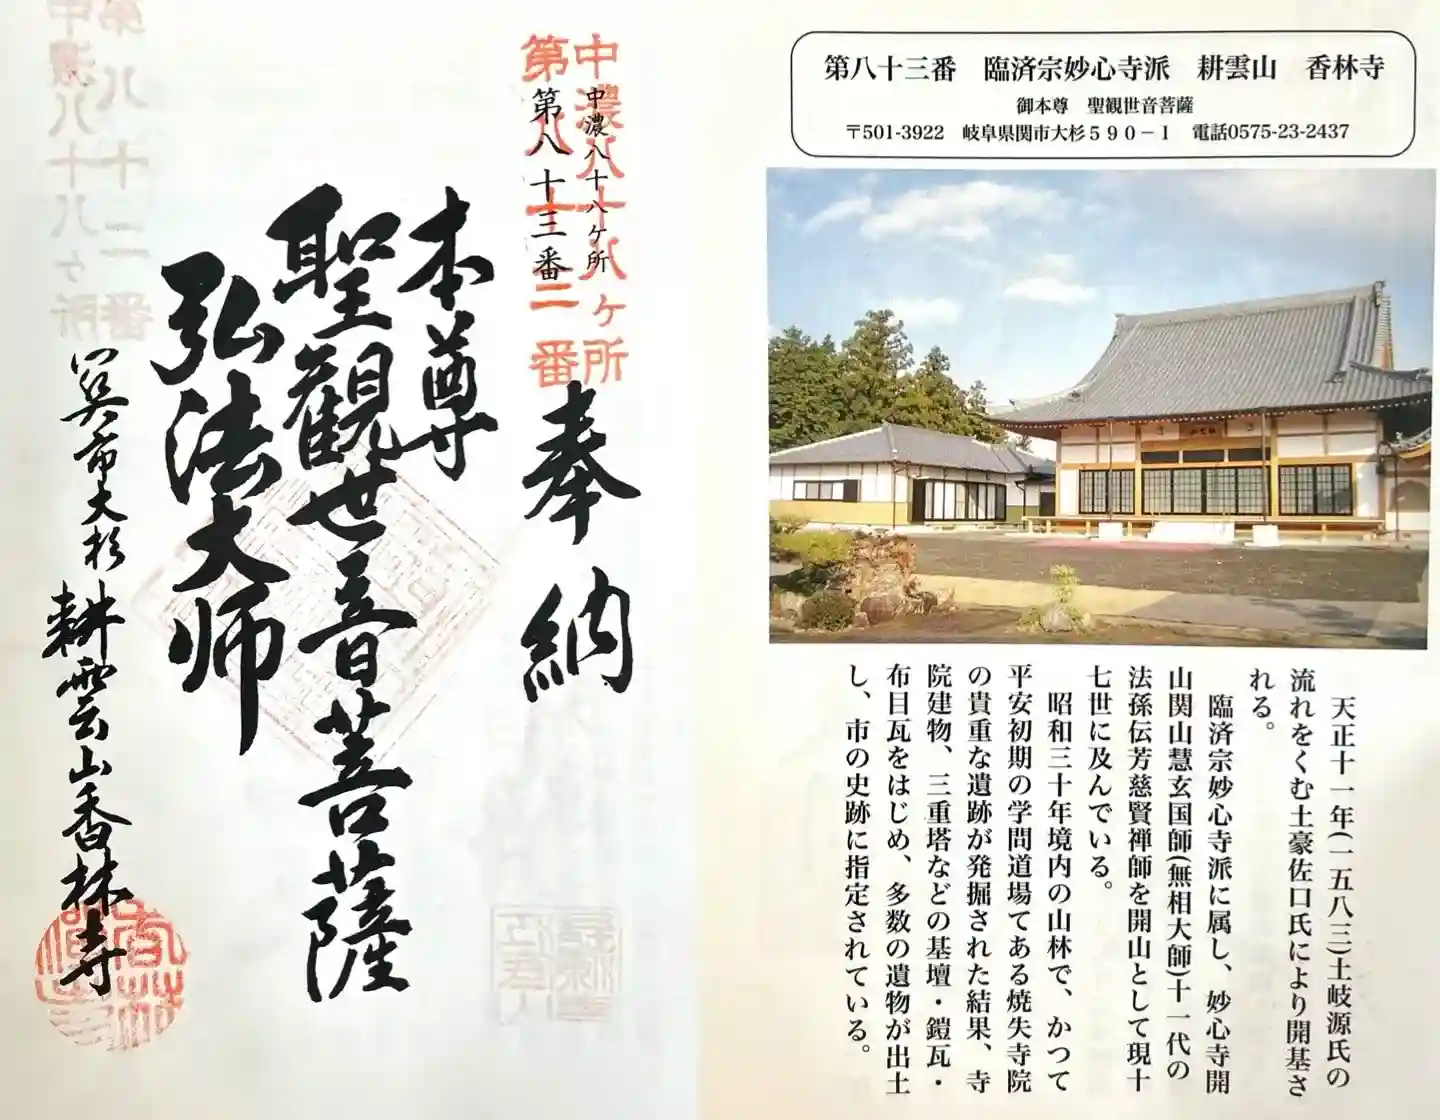 第八十三番　臨済宗妙心寺派　耕雲山　香林寺
御本尊　聖観世音菩薩
〒501-3922　岐阜県関市大杉５９０－１　電話0575-23-2437
天正十一年(一五八三)土岐源氏の
流れをくむ土豪佐口氏により開基さ
れる。
臨済宗妙心寺派に属し、妙心寺開
山関山慧玄国師(無相大師)十一代の
法孫伝芳慈賢禅師を開山として現十
七世に及んでいる。
昭和三十年境内の山林で、かつて
平安初期の学問道場てある焼失寺院
の貴重な遺跡が発掘された結果、寺
院建物、三重塔などの基壇・鎧瓦・
布目瓦をはじめ、多数の遺物が出土
し、市の史跡に指定されている。
中濃八十八ヶ所
第八十二番
中濃八十八ヶ所
第八十三番
奉納
本尊
聖観世音菩薩
弘法大师
市大杉
耕雲山香林寺
第八十二番
中濃八十八ヶ所